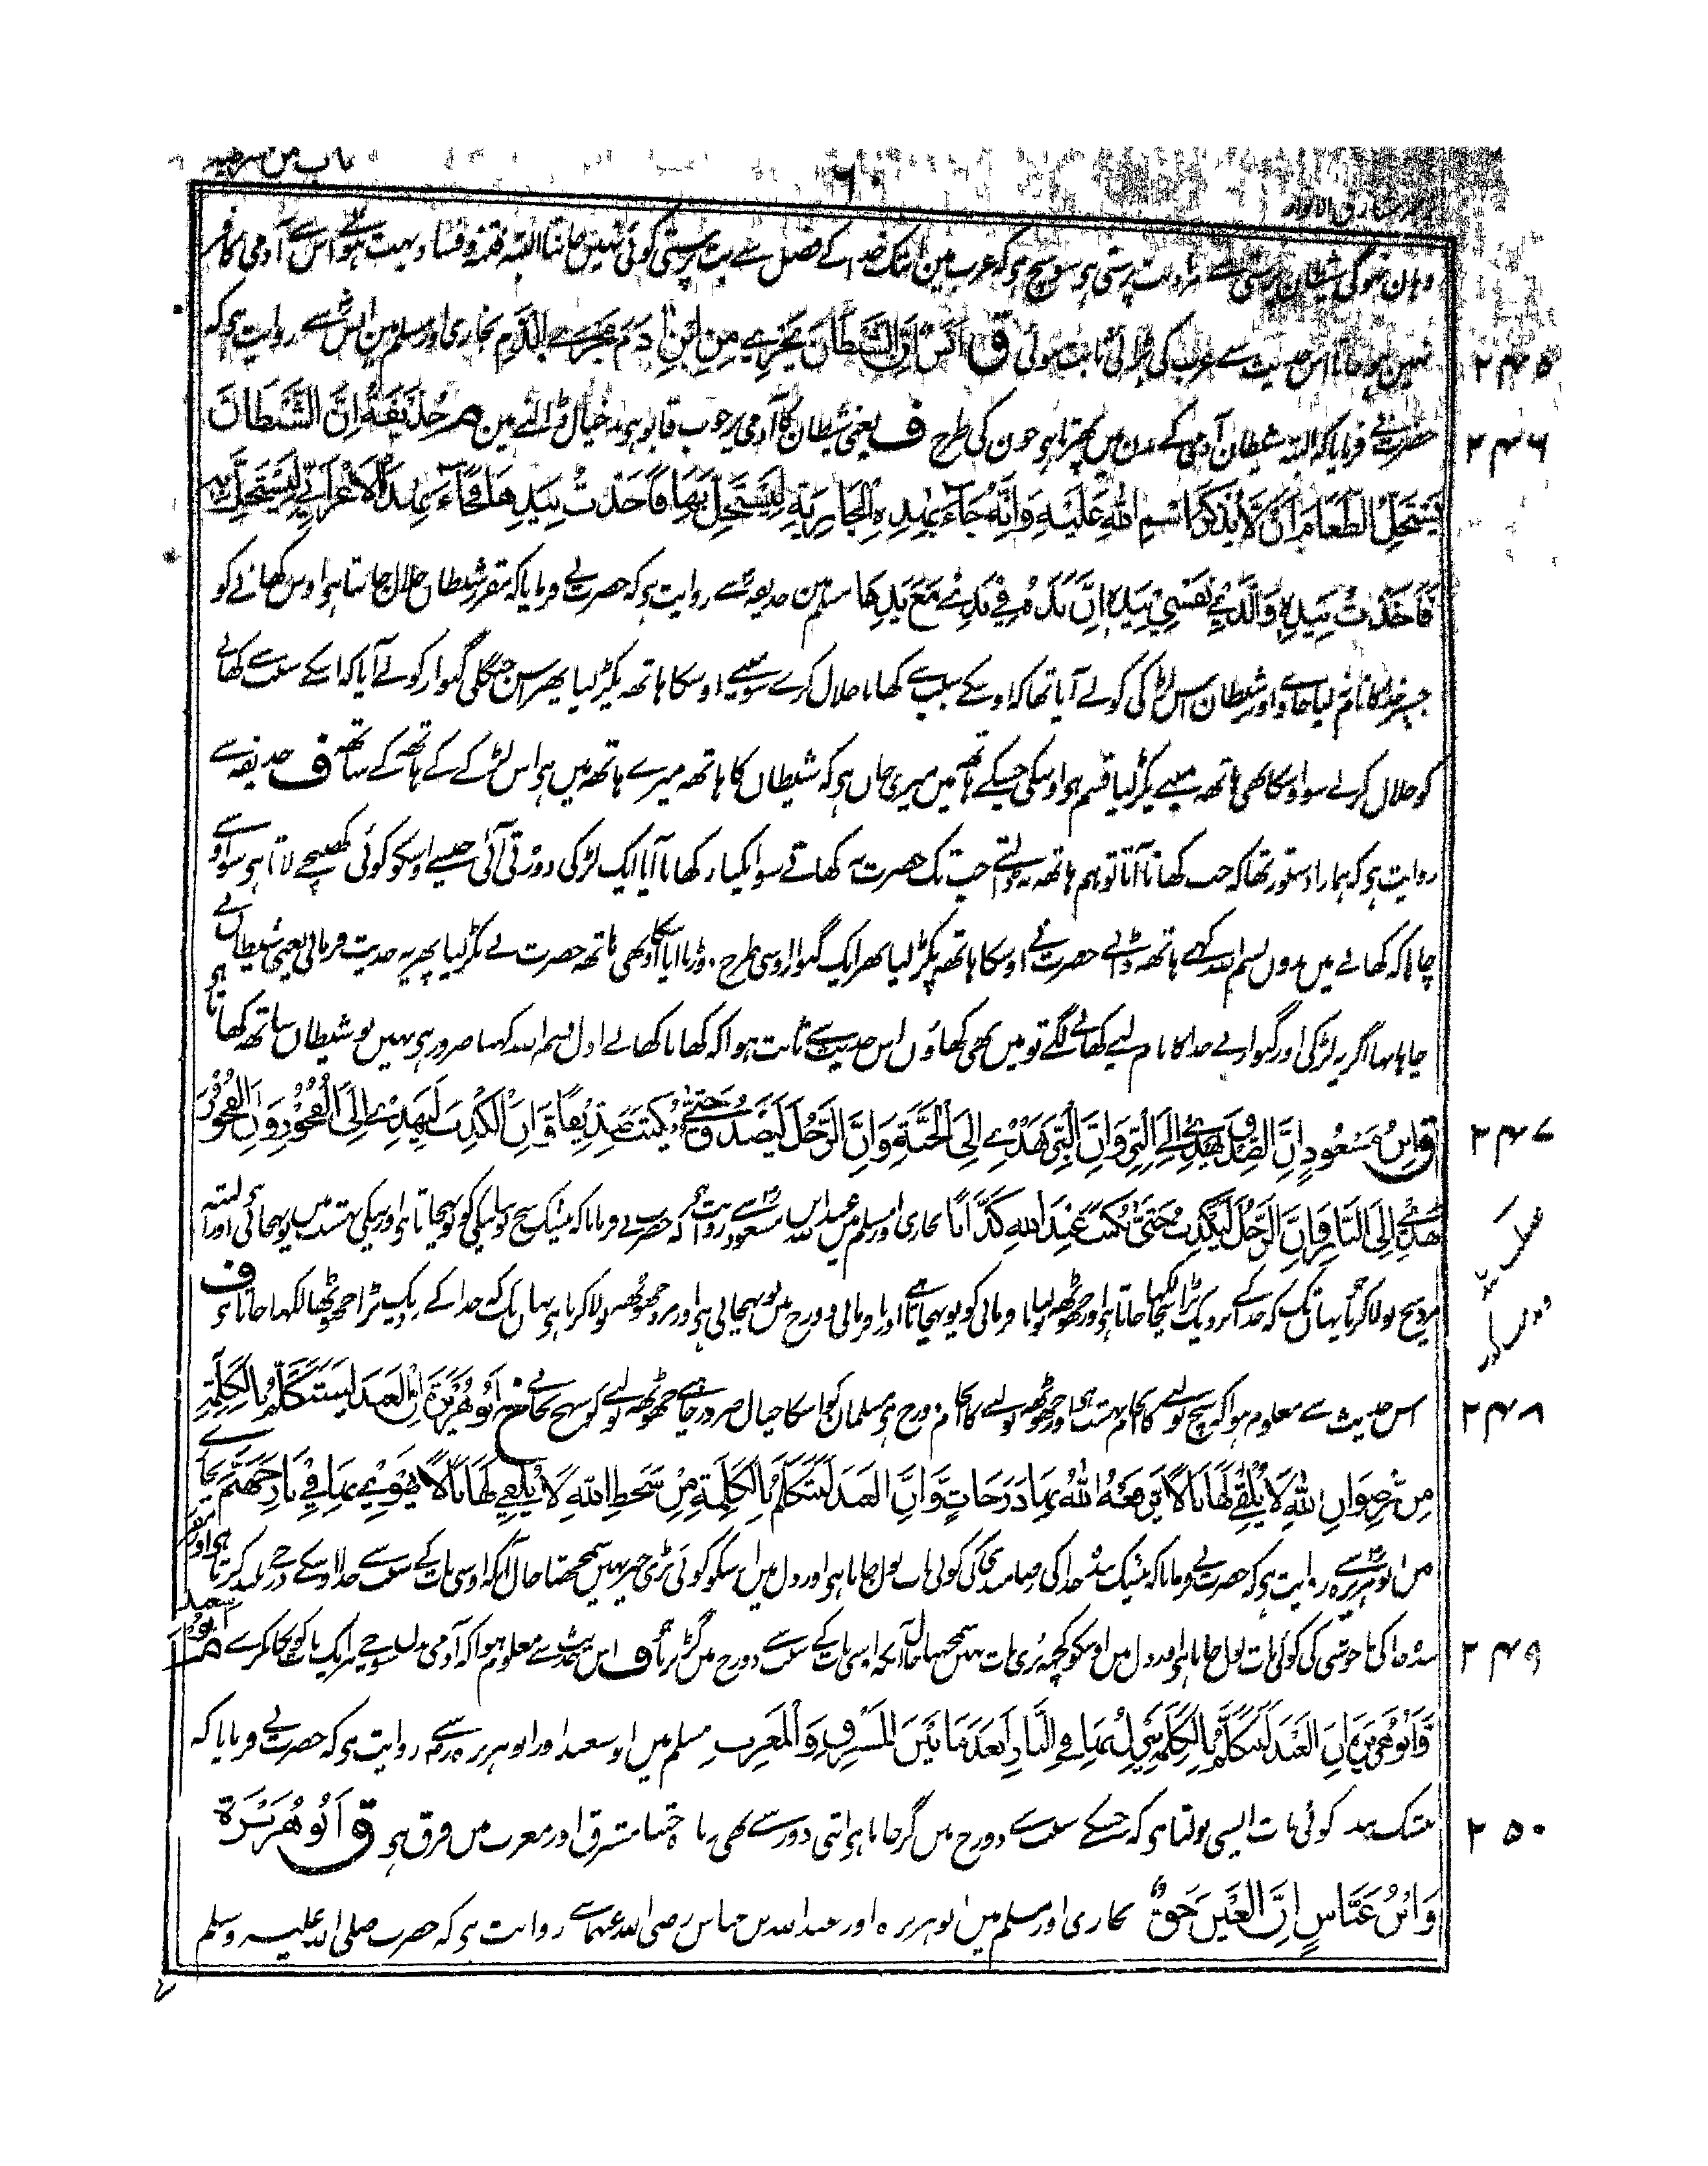 باب من شرطیہ
۶۰
مشارق الانوار
وہان خوکی شیطان پرستی سے مراد بت پرستی ہی سو سچ ہی کہ عرب مین ابتک خدا کے فضل سے بت پرستی کوئی نہین جانتا البتہ فتنہ و فساد بہت ہوئے اس سے آدمی کافر
نہین ہو جاتا اس حدیث سے عرب کی بڑائی ثابت ہوئی ق اَنَسٌ اِنَّ الشَّیْطَانَ یَجْرِیْ مِنِ ابْنِ اٰدَمَ مَجْرَی الدَّمِ بخاری اور مسلم مین انس سے روایت ہی کہ
۲۴۵
حضرت نے فرمایا کہ البتہ شیطان آدمی کے بدن میں پھرتا ہی خون کی طرح ف یعنی شیطان کا آدمی پر خوب قابو ہی بد خیال ڈالنے مین م حُذَیْفَۃُ اِنَّ الشَّیْطَانَ
۲۴۶
یَسْتَحِلُّ الطَّعَامَ اَنْ لَّا یُذْکَرَ اسْمُ اللّٰہِ عَلَیْہِ وَاِنَّہٗ جَآءَ بِهٰذِہِ الْجَارِیَۃِ لِیَسْتَحِلَّ بِهَا فَاَخَذْتُ بِیَدِهَا فَجَآءَ بِهٰذَا الْاَعْرَابِیِّ لِیَسْتَحِلَّ بِہٖ
فَاَخَذْتُ بِیَدِہٖ وَالَّذِیْ نَفْسِیْ بِیَدِہٖ اِنَّ یَدَہٗ فِیْ یَدِیْ مَعَ یَدِهَا مسلم مین حذیفہ سے روایت ہی کہ حضرت نے فرمایا کہ مقرر شیطان حلال جانتا ہی اوس کھانے کو
جسپر خدا کا نام نہ لیا جاوے اور شیطان اس لڑکی کو لے آیا تھا کہ اوسکے سبب سے کھانا حلال کرے سو مینے اوسکا ہاتھ پکڑ لیا پھر اس جنگلی گنوار کو لے آیا کہ اسکے سبب سے کھانے
کو حلال کرلے سو اوسکا بھی ہاتھ مینے پکڑ لیا قسم ہی اوسکی جسکے ہاتھ میں میری جان ہی کہ شیطان کا ہاتھ میرے ہاتھ میں ہی اس لڑکے کے ہاتھ کے ساتھ ف حذیفہ سے
روایت ہی کہ ہمارا دستور تھا کہ جب کھانا آتا تو ہم ہاتھ نہ ڈالتے جب تک حضرت نہ کھاتے سو ایکبار کھانا آیا ایک لڑکی دوڑتی آئی جیسے اوسکو کوئی کھینچے لاتا ہی سو اوسنے
چاہا کہ کھانے میں بدون بسم اللہ کہے ہاتھ ڈالے حضرت نے اوسکا ہاتھ پکڑ لیا پھر ایک گنوار اوسی طرح دوڑتا آیا اوسکا بھی ہاتھ حضرت نے پکڑ لیا پھر یہ حدیث فرمائی یعنی شیطان نے
چاہا تھا اگر یہ لڑکی اور گنوار بے خدا کا نام لیے کھانے لگے تو میں بھی کھاؤں اس حدیث سے ثابت ہوا کہ کھانا کھانے اول بسم اللہ کہنا ضرور ہی نہیں تو شیطان ساتھ کھاتا ہی
ق ابْنُ مَسْعُوْدٍ اِنَّ الصِّدْقَ یَهْدِیْ اِلَی الْبِرِّ وَاِنَّ الْبِرَّ یَهْدِیْ اِلَی الْجَنَّۃِ وَاِنَّ الرَّجُلَ لَیَصْدُقُ حَتّٰی یُکْتَبَ صِدِّیْقًا وَاِنَّ الْکَذِبَ یَهْدِیْ اِلَی الْفُجُوْرِ وَاِنَّ الْفُجُوْرَ
۲۴۷
یَهْدِیْ اِلَی النَّارِ وَاِنَّ الرَّجُلَ لَیَکْذِبُ حَتّٰی یُکْتَبَ عِنْدَ اللّٰہِ کَذَّابًا بخاری اور مسلم میں عبد اللہ بن مسعود سے روایت ہی کہ حضرت نے فرمایا کہ بیشک سچ بولنا نیکی کو پہنچاتا ہی اور نیکی بہشت میں پہنچاتی ہی اور البتہ
مرد سچ بولا کرتا ہی یہانتک کہ خدا کے نزدیک بڑا سچا لکھا جاتا ہی اور جھوٹھ بولنا نافرمانی کو پہنچاتا ہی اور نافرمانی دوزخ میں پہنچاتی ہی اور مرد جھوٹھ بولا کرتا ہی یہاں تک کہ خدا کے نزدیک بڑا جھوٹھا لکھا جاتا ہی ف
اس حدیث سے معلوم ہوا کہ سچ بولنے کا انجام بہشت ہی اور جھوٹھ بولنے کا انجام دوزخ ہی مسلمان کو اسکا خیال ضرور چاہیے جھوٹھ بولنے کو سہج نجانے خ اَبُوْ هُرَیْرَۃَ اِنَّ الْعَبْدَ لَیَتَکَلَّمُ بِالْکَلِمَۃِ
۲۴۸
مِنْ رِّضْوَانِ اللّٰہِ لَا یُلْقِیْ لَهَا بَالًا یَرْفَعُہُ اللّٰہُ بِهَا دَرَجَاتٍ وَّاِنَّ الْعَبْدَ لَیَتَکَلَّمُ بِالْکَلِمَۃِ مِنْ سَخَطِ اللّٰہِ لَا یُلْقِیْ لَهَا بَالًا یَهْوِیْ بِهَا فِیْ نَارِ جَهَنَّمَ بخاری
مین ابو ہریرہ سے روایت ہی کہ حضرت نے فرمایا کہ بیشک بندہ خدا کی رضامندی کی کوئی بات بول جاتا ہی اور دل میں اسکو کوئی بڑی چیز نہیں سمجھتا حال آنکہ اوسی بات کے سبب سے خدا اوسکے درجے بلند کرتا ہی اور مقرر
بندہ خدا کی ناخوشی کی کوئی بات بول جاتا ہی اور دل میں اوسکو کچھ بُری بات نہیں سمجھتا حال آنکہ ایسی بات کے سبب سے دوزخ میں گر پڑتا ہی ف اس حدیث سے معلوم ہوا کہ آدمی بے سوچے ہر ایک بات کو نہ بکا کرے م اَبُوْ سَعِیْد
۲۴۹
وَاَبُوْ هُرَیْرَۃَ اِنَّ الْعَبْدَ لَیَتَکَلَّمُ بِالْکَلِمَۃِ یَنْزِلُ بِهَا فِی النَّارِ اَبْعَدَ مَا بَیْنَ الْمَشْرِقِ وَالْمَغْرِبِ مسلم میں ابو سعید اور ابو ہریرہ سے روایت ہی کہ حضرت نے فرمایا کہ
بیشک بندہ کوئی بات ایسی بولتا ہی کہ جسکے سبب سے دوزخ میں گر جاتا ہی اتنی دور سے بھی زیادہ جتنا مشرق اور مغرب میں فرق ہی ق اَبُوْ هُرَیْرَۃَ
۲۵۰
وَابْنُ عَبَّاسٍ اِنَّ الْعَیْنَ حَقٌّ بخاری اور مسلم میں ابو ہریرہ اور عبد اللہ بن عباس رضی اللہ عنہما سے روایت ہی کہ حضرت صلی اللہ علیہ وسلم